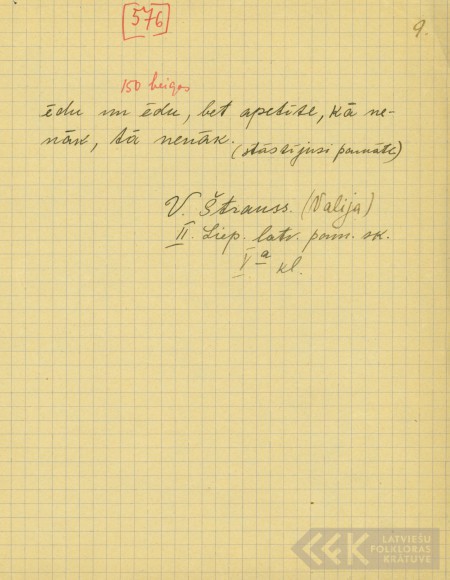 [576]
9.
150 beigas
ēdu un ēdu, bet apetīte, kā ne-
nāk, tā nenāk. (stāstījusi pamāte)
V. Štrauss. (Valija)
II. Liep. latv. pam. sk.
Vª kl.
LATVIEŠU
FOLKLORAS
KRĀTUVE